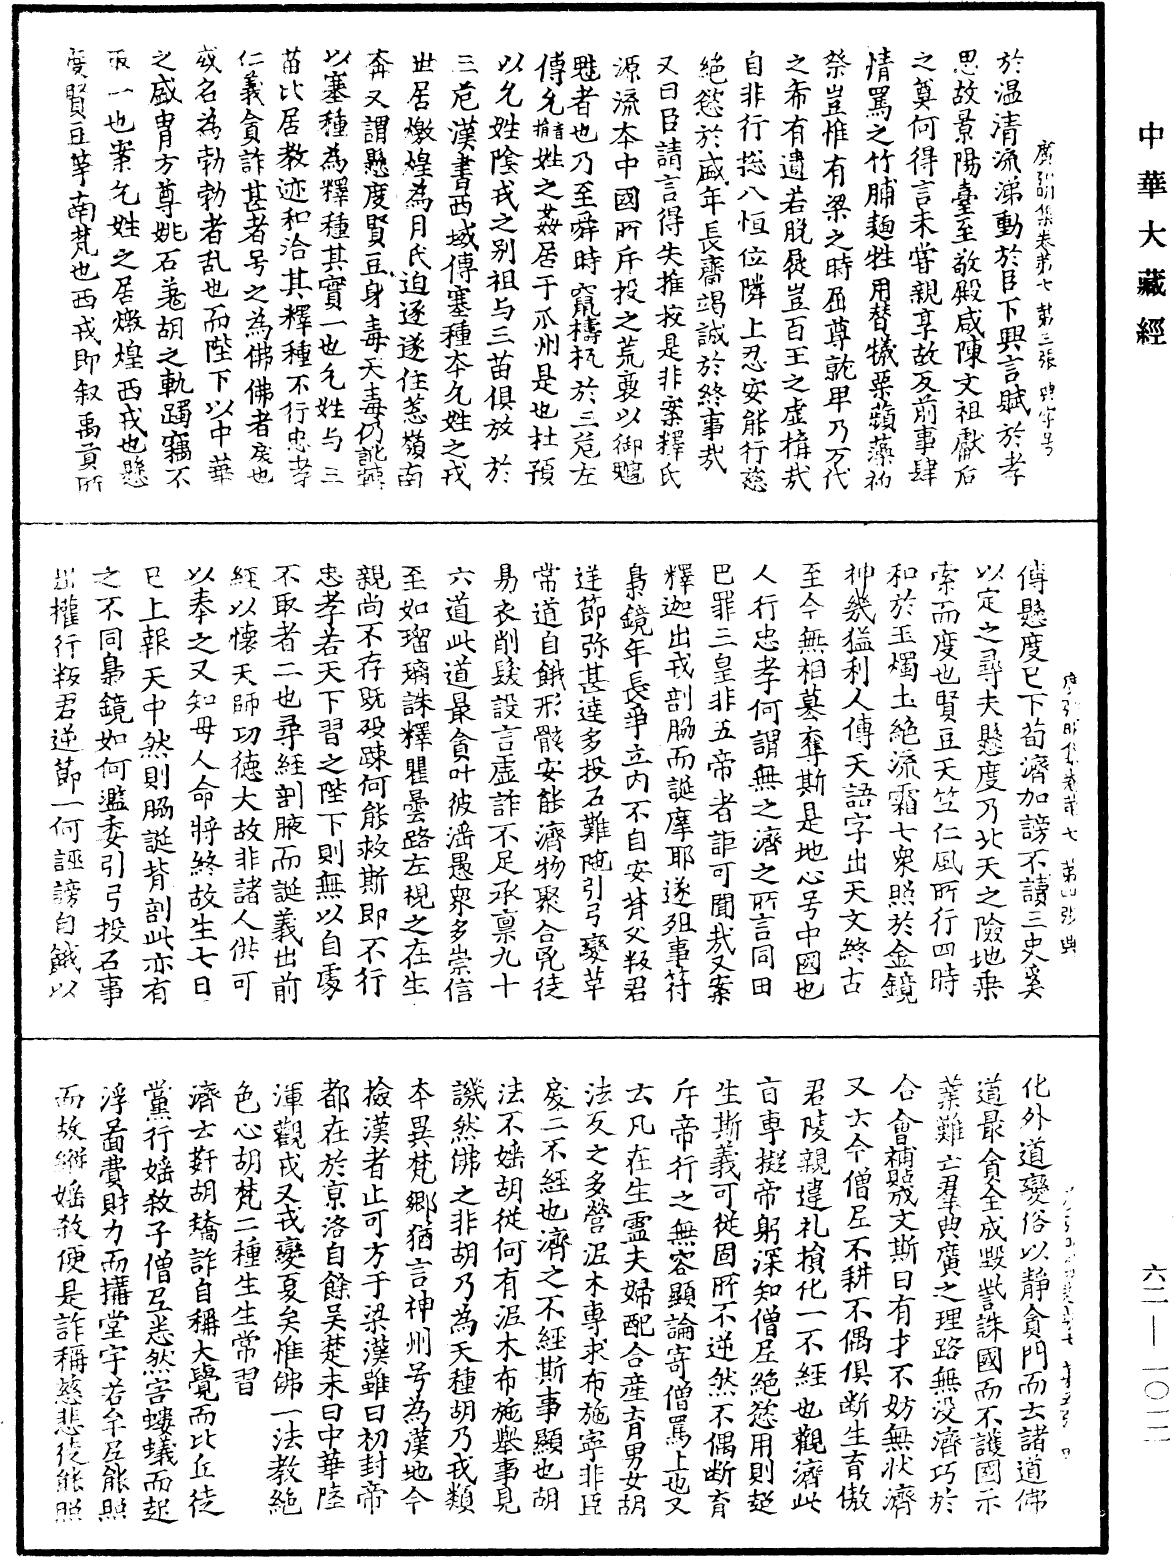 中華大藏經
廣弘明集卷第七 第三張 典字号
於温清流涕動於臣下興言賦於孝
思故景陽臺至敬殿咸陳文祖獻后
之奠何得言未嘗親享故反前事肆
情罵之竹脯麵牲用替犧粟蘋藻礿
祭豈惟有梁之時屈尊就卑乃万代
之希有遺若脫屣豈百王之虛搆哉
自非行揔八恒位隣上忍安能行慈
絕慾於盛年長齋竭誠於終事哉
又曰臣請言得失推校是非案釋氏
源流本中國所斥投之荒裔以御魑
魅者也乃至舜時竄檮杌於三危左
傳允姓之姦居于瓜州是也杜預
以允姓陰戎之别祖与三苗俱放於
三危漢書西域傳塞種本允姓之戎
世居燉煌為月氏迫逐遂住葱嶺南
奔又謂懸度賢豆身毒天毒仍訛轉
以塞種為釋種其實一也允姓与三
苗比居教迹和洽其釋種不行忠孝
仁義貪詐甚者号之為佛佛者戾也
或名為勃勃者乱也而陛下以中華
之盛胄方尊姚石羌胡之軌躅竊不
取一也案允姓之居燉煌西戎也懸
度賢豆等南梵也西戎即叙禹貢所
廣弘明集卷第七 第四張 典
傅懸度已下荀濟加謗不讀三史奚
以定之尋夫懸度乃北天之險地乗
索而度也賢豆天竺仁風所行四時
和於玉燭土絕流霜七衆照於金鏡
神幾猛利人傳天語字出天文終古
至今無相墓奪斯是地心号中國也
人行忠孝何謂無之濟之所言同田
巴罪三皇非五帝者詎可聞哉又案
釋迦出戎剖脇而誕摩耶遂殂事符
梟鏡年長爭立内不自安背父叛君
逆節弥甚達多投石難陁引弓變革
常道自餓形骸安能濟物聚合兇徒
易衣削髮設言虛詐不足承禀九十
六道此道最貪叶彼淫愚衆多崇信
至如瑠璃誅釋瞿曇路左視之在生
親尚不存既殁踈何能救斯即不行
忠孝若天下習之陛下則無以自處
不取者二也尋經剖腋而誕義出前
經以懐天師功德大故非諸人供可
以奉之又知母人命將終故生七日
已上報天中然則脇誕背剖此亦有
之不同梟鏡如何濫委引弓投石事
出權行叛君逆節一何誣謗自餓以
化外道變俗以靜貪門而云諸道佛
道最貪全成毀呰誅國而不護國示
業難亡羣典廣之理路無没濟巧於
合會補綴成文斯曰有才不妨無状濟
又云今僧尼不耕不偶俱断生育傲
君陵親違礼損化一不經也觀濟此
言專擬帝躬深知僧尼絕慾用則趍
生斯義可從固所不逆然不偶断育
斥帝行之無容顯論寄僧罵上也又
云凡在生靈夫婦配合産育男女胡
法反之多營泥木專求布施寧非臣
戾二不經也濟之不經斯事顯也胡
法不婬胡從何有泥木布施舉事見
譏然佛之非胡乃為天種胡乃戎類
本異梵鄉猶言神州号為漢地今
撿漢者止可方于梁漢雖曰初封帝
都在於京洛自餘吴楚未曰中華陸
渾觀戎又戎變夏矣惟佛一法教絕
色心胡梵二種生生常習
濟云姧胡矯詐自稱大覺而比丘徒
黨行婬敎子僧尼悉然害螻蟻而起
浮啚費財力而搆堂宇若牟尼能照
而故縱婬敎便是詐稱慈悲徒能照
六二—一〇二二